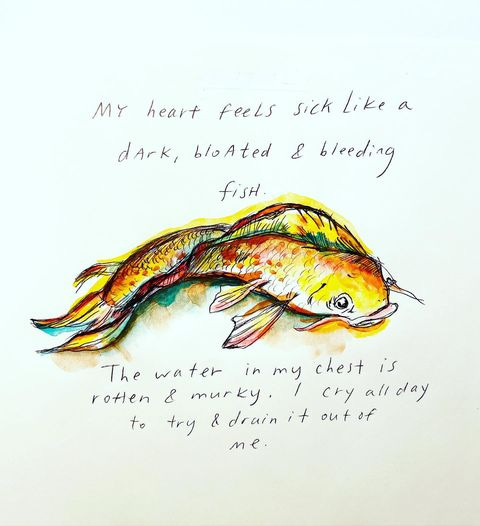 MY heart feels sick like a
dark, bloated & bleeding
fish.
The water in my chest is
rotten & murky. I cry all day
to try & drain it out of
me.